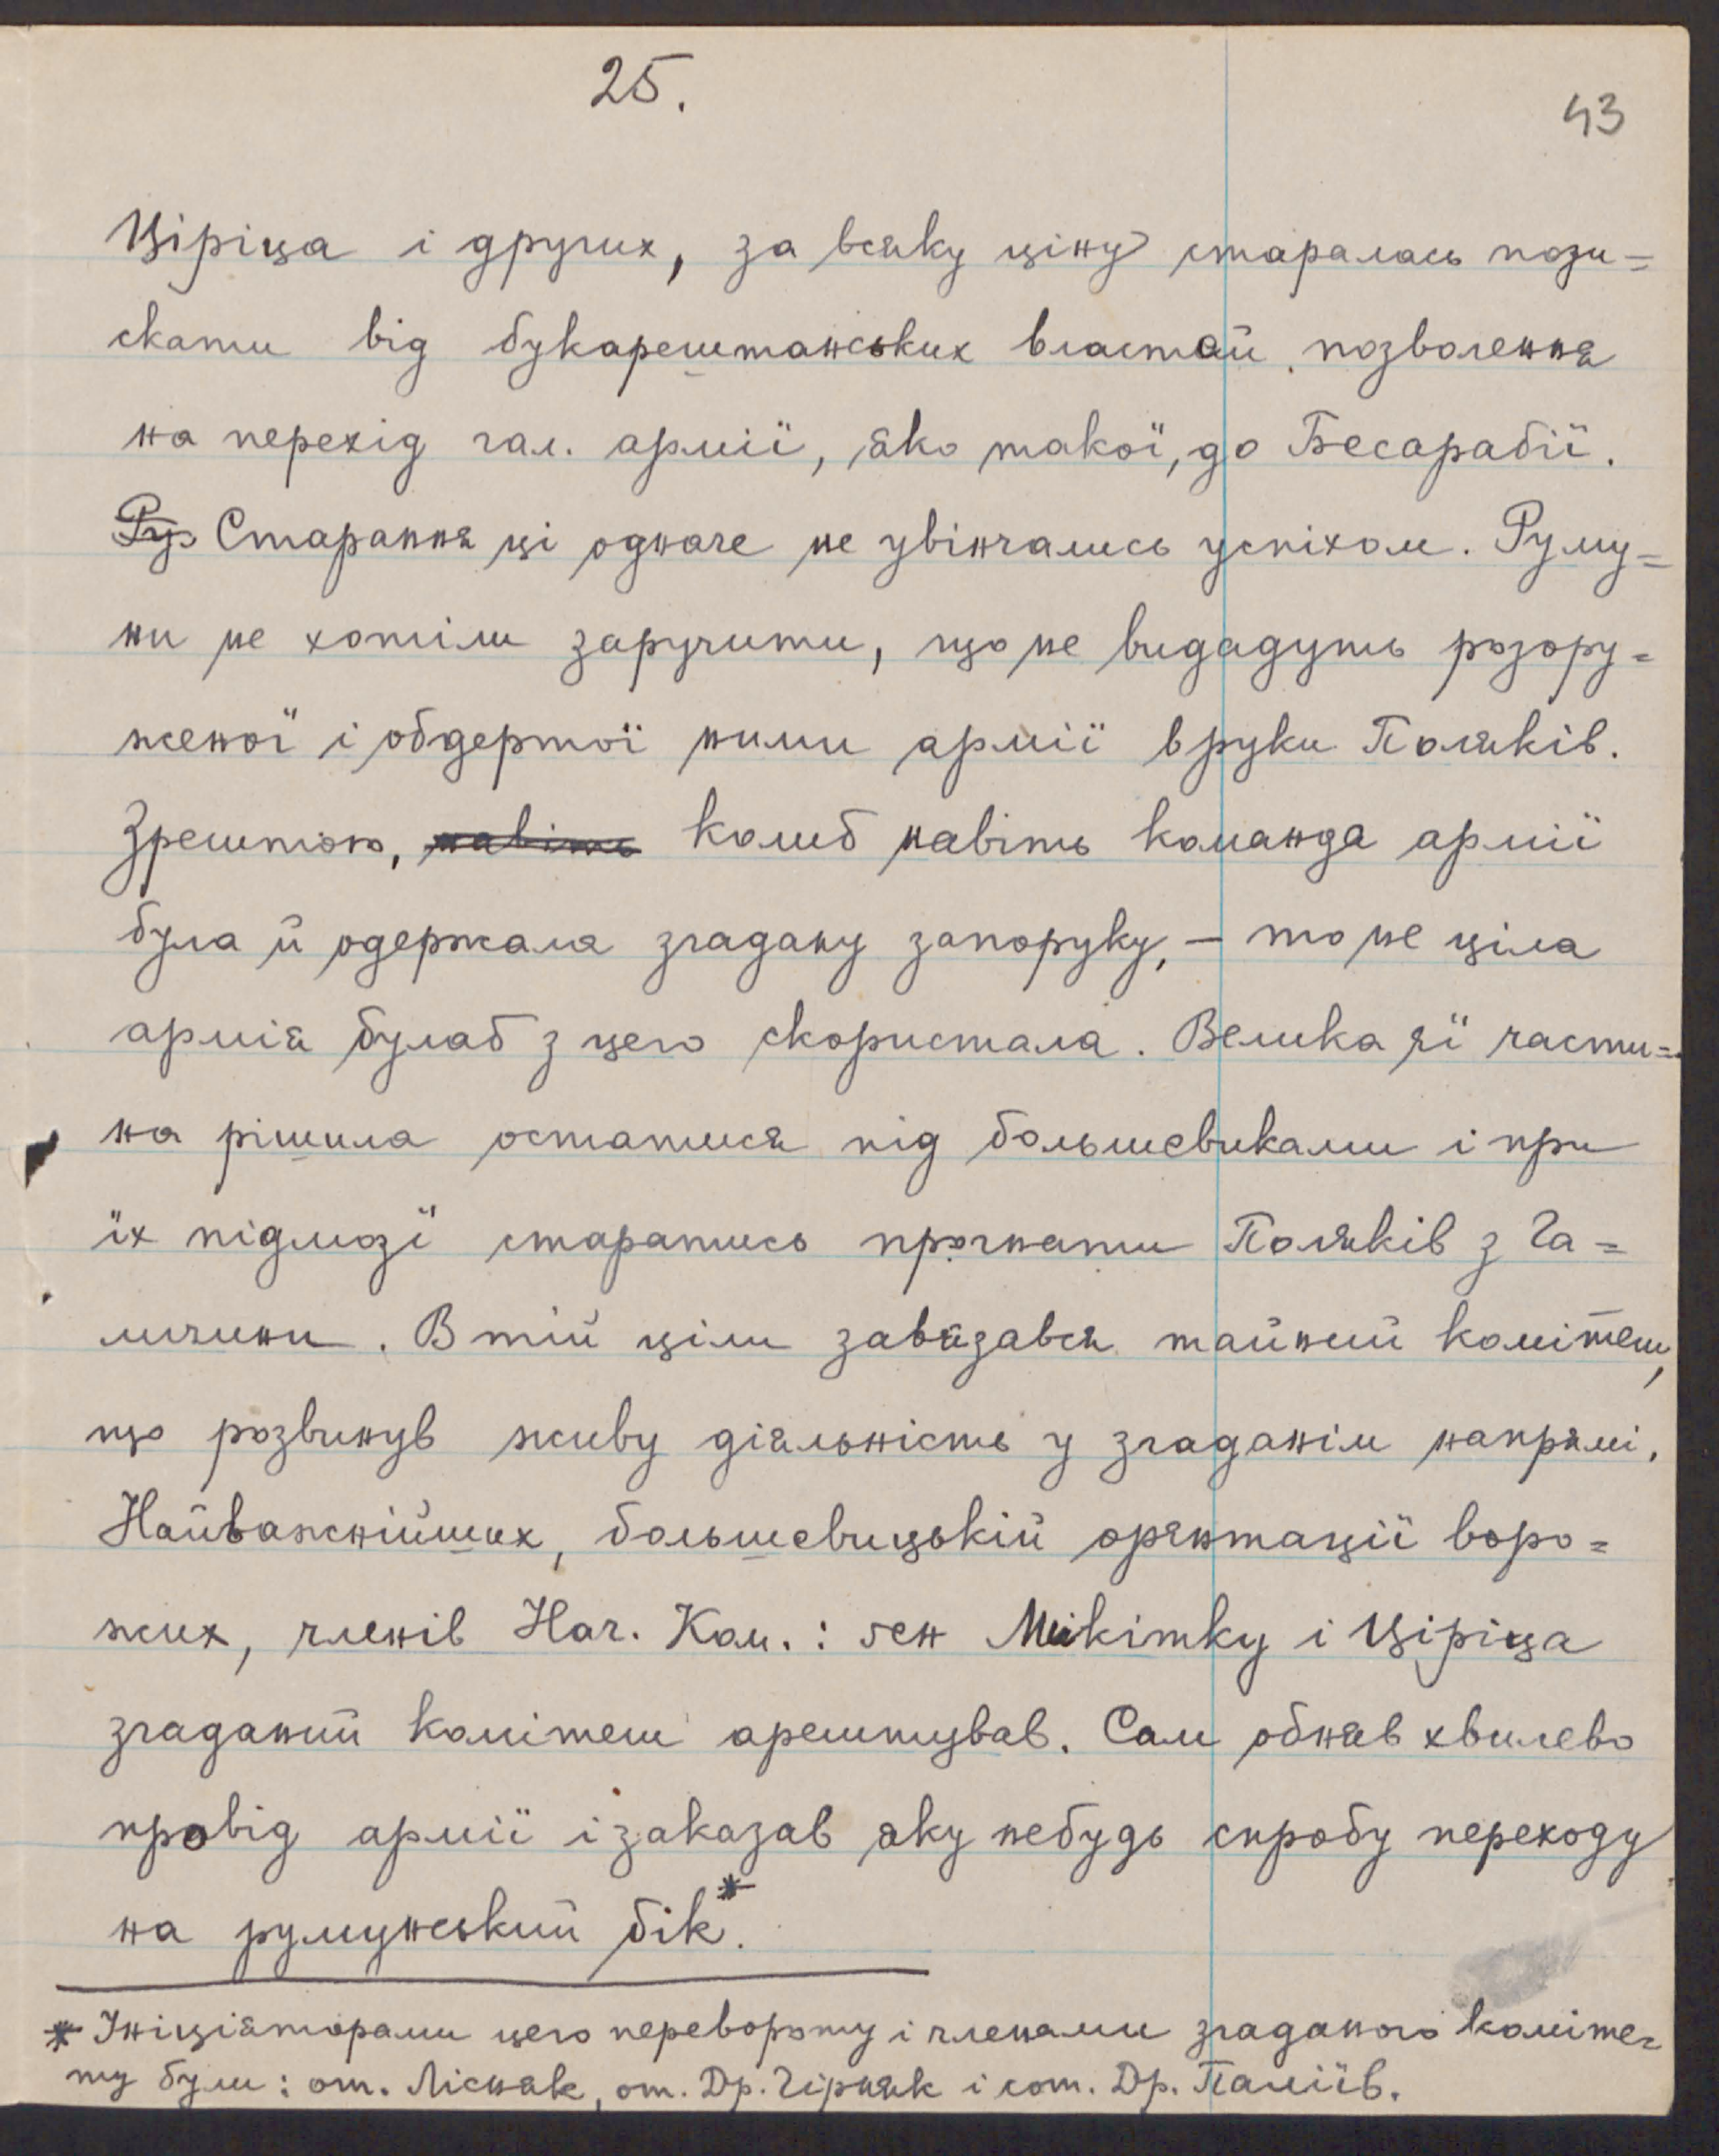 25.
43
Ціріца і других, за всяку ціну старалась пози=
скати від букарештанських властий позволення
на перехід гал. армії, яко такої, до Бесарабії.
Ру Старання ці одначе не увінчались успіхом. Руму=
ни не хотіли заручити, що не видадуть розору=
женої і обдертої ними армії в руки Поляків.
Зрештою, навіть колиб навіть команда армії
була й одержала згадану запоруку, – то не ціла
армія булаб з цего скористала. Велика її части=
на рішила остатися під большевиками і при
їх підмозї старатись прогнати Поляків з Га=
личини. В тій ціли завязався тайний комітет,
що розвинув живу діяльність у згаданім напрямі.
Найважнійших, большевицькій орянтації воро=
жих, членів Нач. Ком.: ґен Микітку і Ціріца
згаданий комітет арештував. Сам обняв хвилево
провід армії і заказав яку небудь спробу переходу
на румунський бік.*
* Інїціяторами цего перевороту і членами згаданого коміте=
ту були: от. Лісняк, от. Др. Гірняк і сот. Др. Паліїв.